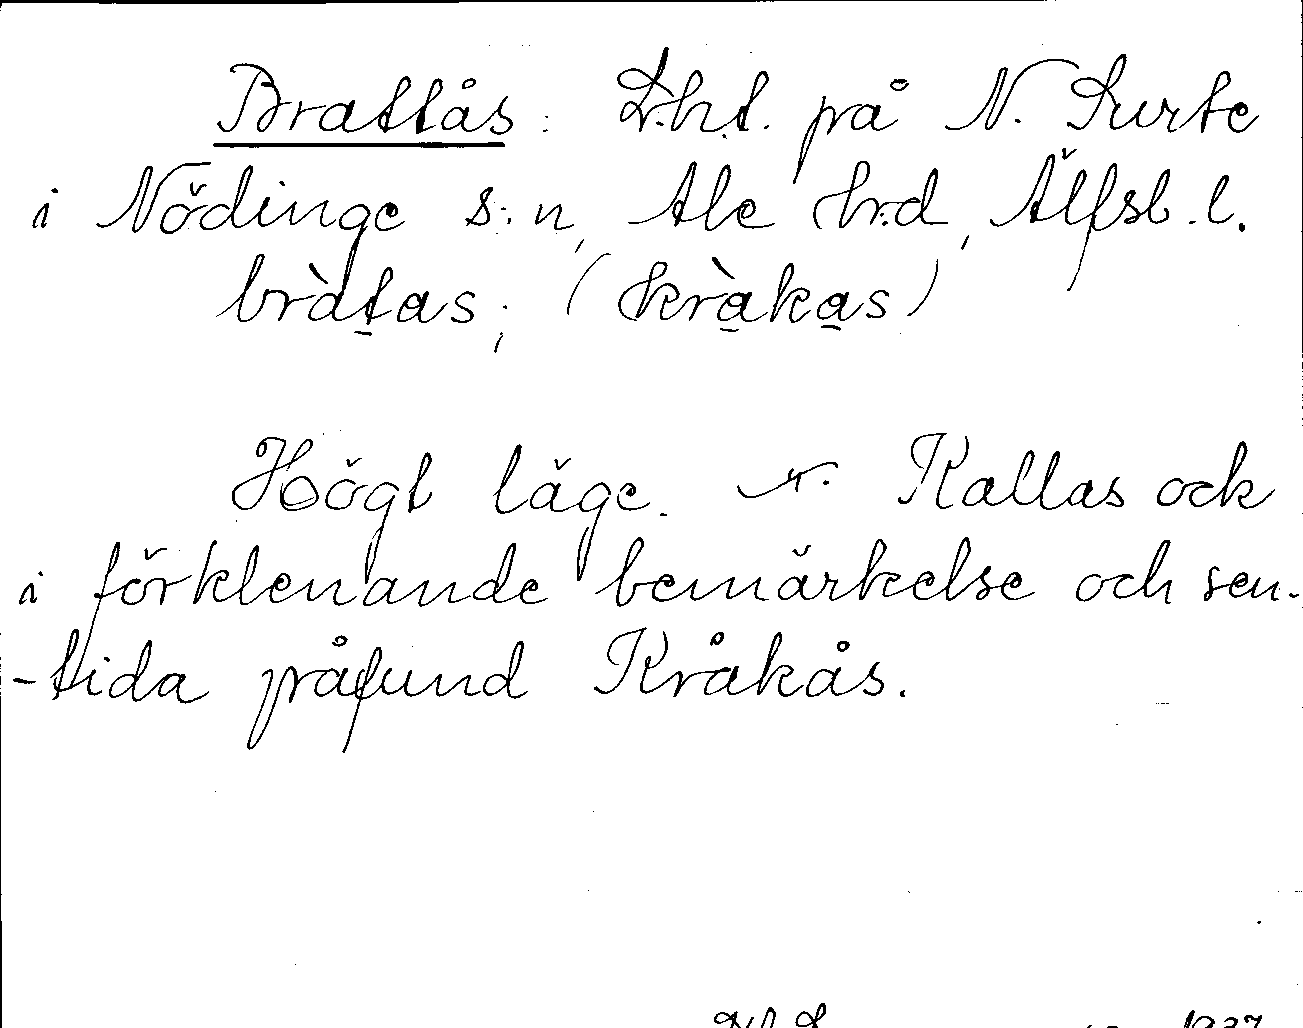 Brattås: L:h.t. på N. Surte
i Nödinge s:n, Ale h:d, Älfsb. l.
bràtas; (kràkas)
Högt läge. Kallas ock
i förklenande bemärkelse och sen-
-tida påfund Kråkås.
1937